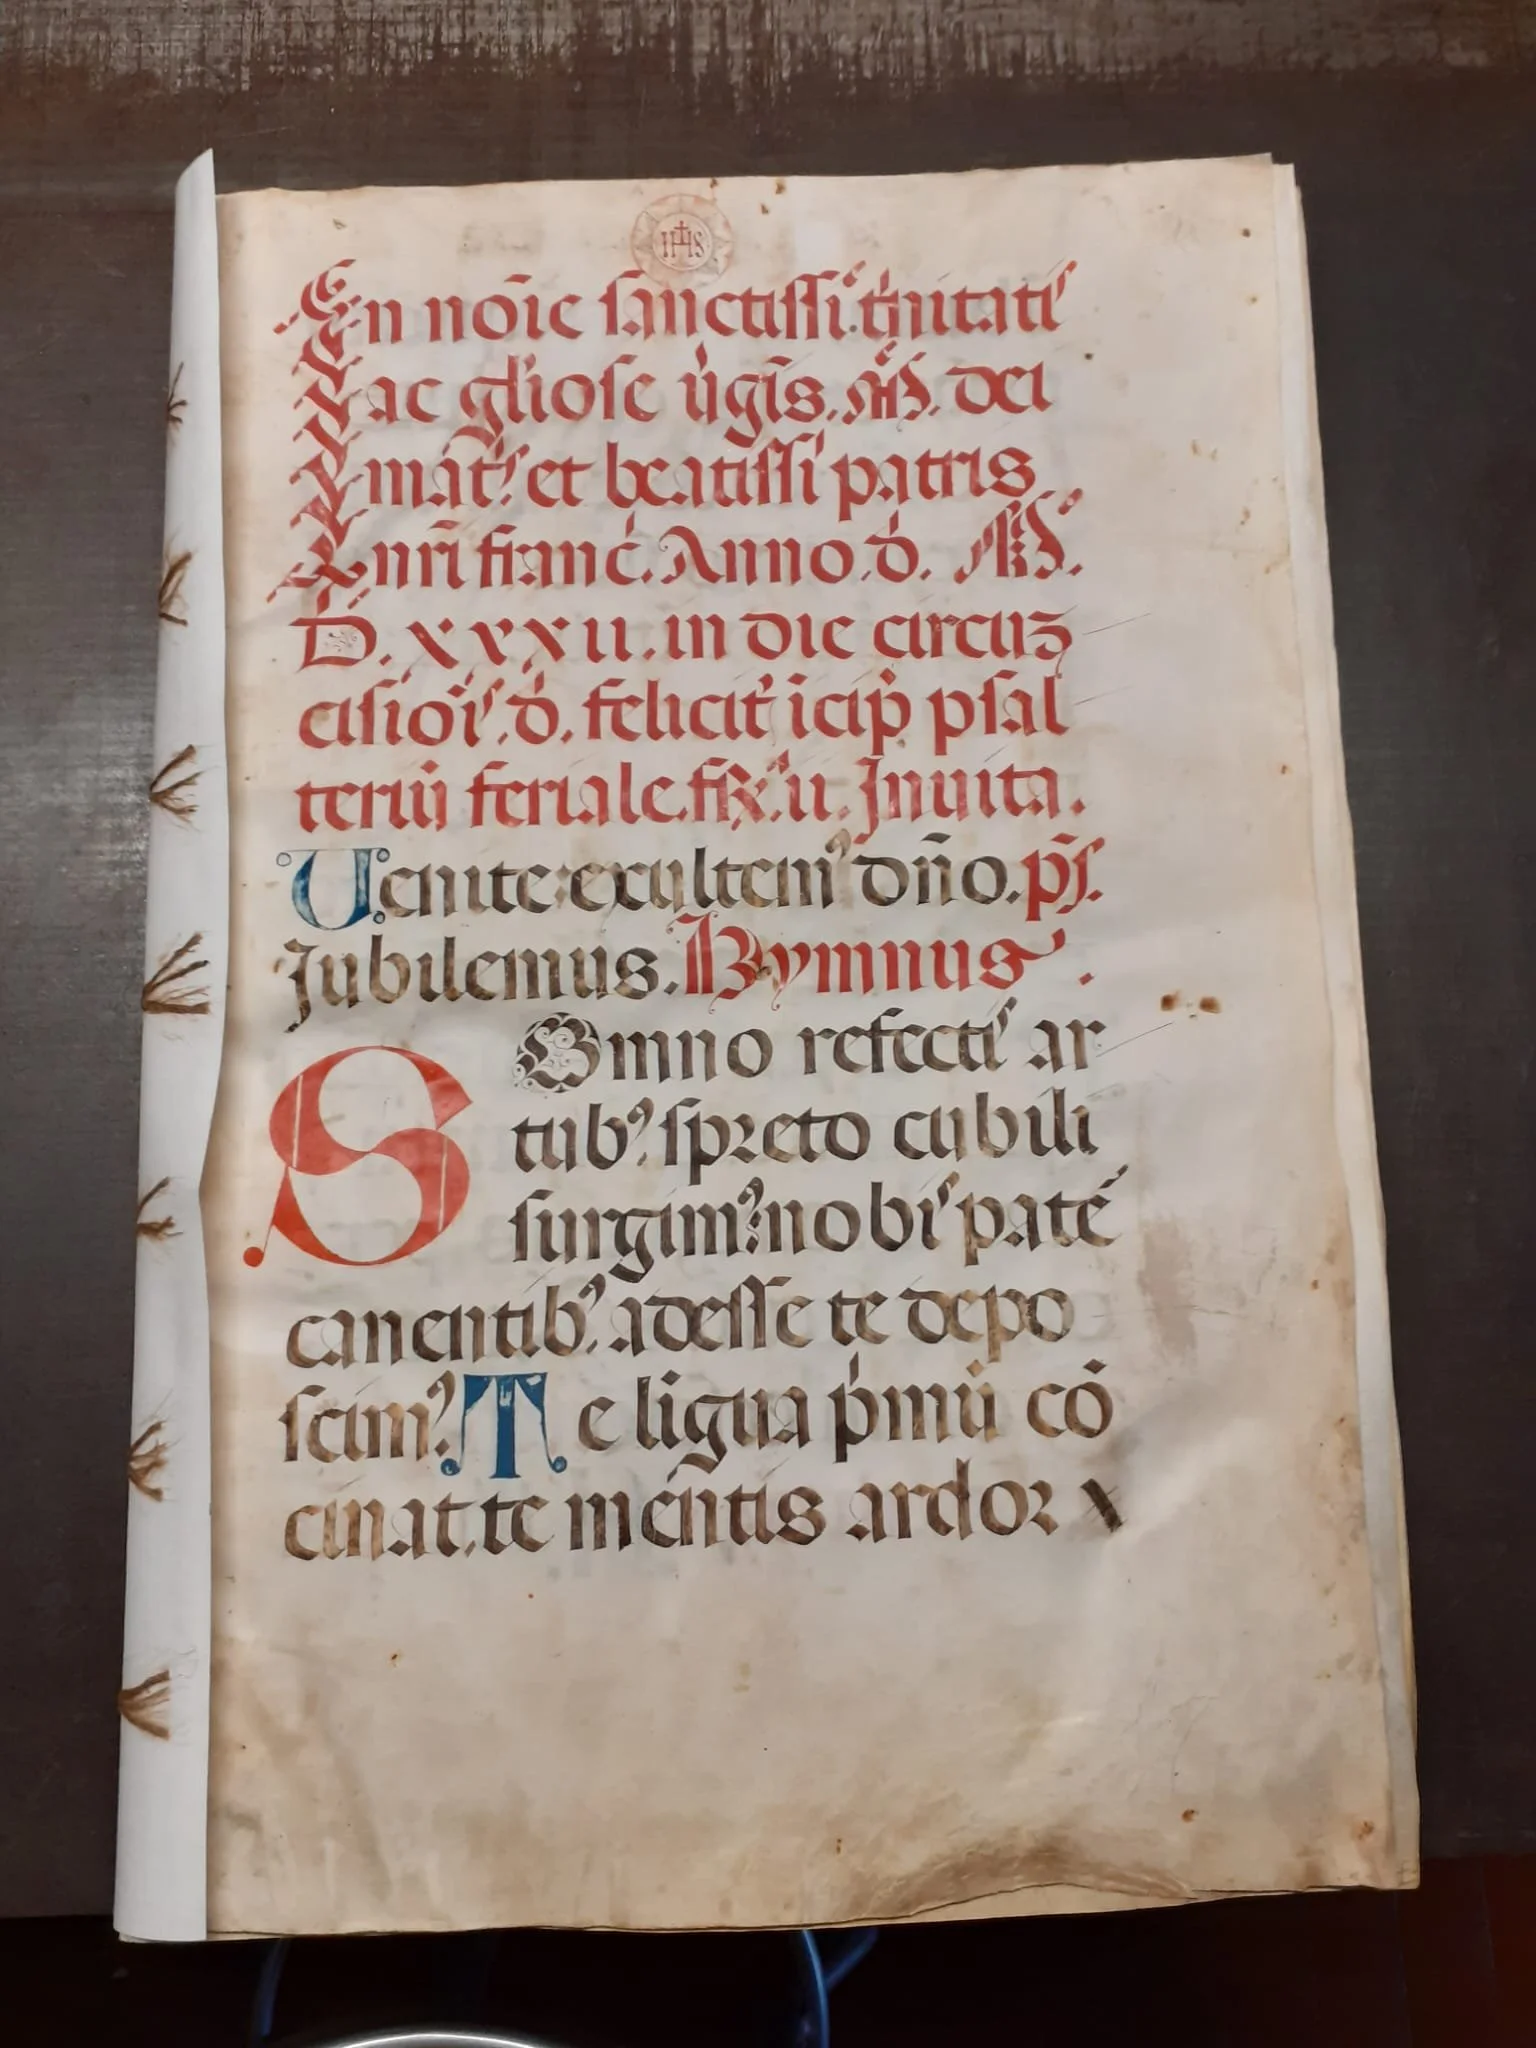 IHS
In noīe sanctissi. t'nitatis
ac gl'iose v'gis. M. dei
mat's et beatissi patris
nr̄i franc. Anno .d. M.
D. xxxii. in die circuz
cisiois .d. felicit' icip psal
teriū feriale. fr. ii. Inuita.
Uenite exultem' dn̄o. ps.
Jubilemus. Hymnus.
SOmno refectis ar
tub' spreto cubili
surgim' nobis patē
canentib' adesse te depo
scim' Te ligua pmū cō
cinat. te mentis ardor